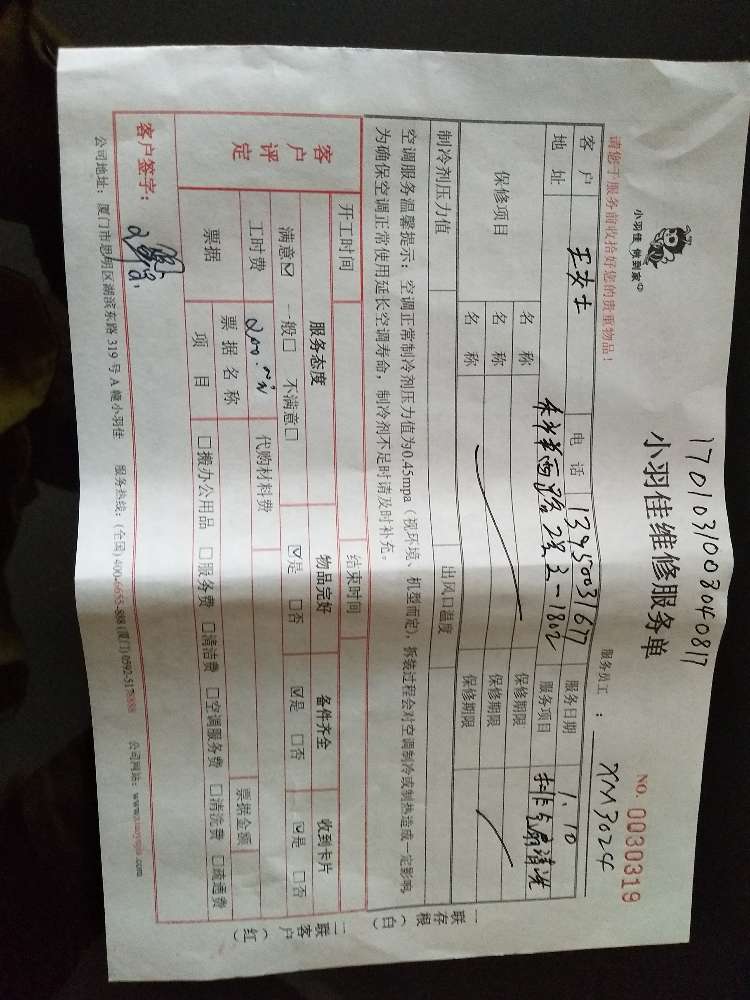 17010310080408​17
小羽佳 做到家
小羽佳维修服务单
NO. 0030319
请您于服务前收拾好您的贵重物品！
服务员工： XM3024
客户 王女士 电话 13950031677 服务日期 1.10
地址 2-1802 服务项目 清洗
保修项目 名称 保修期限
名称 保修期限
名称 保修期限
制冷剂压力值 出风口温度
空调服务温馨提示：空调正常制冷剂压力值为0.45mpa（视环境、机型而定），拆装过程会对空调制冷或制热造成一定影响
为确保空调正常使用延长空调寿命，制冷剂不足时请及时补充。
开工时间 结束时间
客户评定 服务态度 物品完好 备件齐全 收到卡片
满意☑ 一般□ 不满意□ ☑是 □否 ☑是 □否 ☑是 □否
工时费 200.元 代购材料费
票据 票据名称 票据金额
项目 □搬办公用品 □服务费 □清洁费 □空调服务费 □清洗费 □疏通费
客户签字：
公司地址：厦门市思明区湖滨东路 319 号 A 幢小羽佳 服务热线：(全国) 400-6655-888 (厦门) 0592-5178888 公司网站：www.xiaoyujia.com
一联存根（白）
二联客户（红）